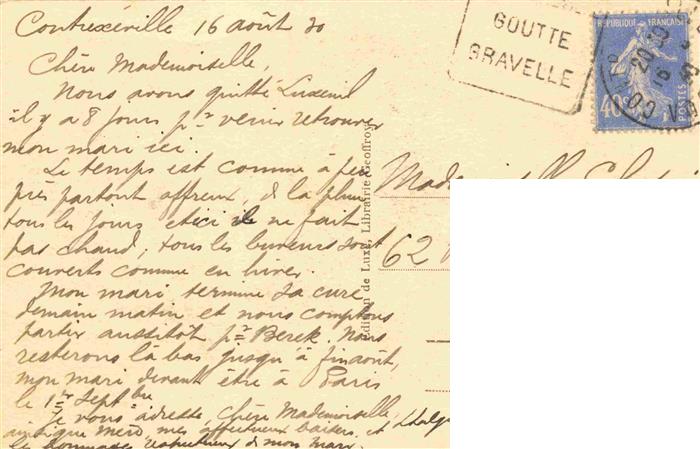 Contrexéville 16 août 30
Chère Mademoiselle,
Nous avons quitté Luxeuil
il y a 8 jours pr venir retrouver
mon mari ici.
Le temps est comme à peu
près partout affreux, de la pluie
tous les jours et ici il ne fait
pas chaud, tous les buveurs sont
couverts comme en hiver.
Mon mari termine sa cure
demain matin et nous comptons
partir aussitôt pr Berck. Nous
resterons là bas jusqu'à fin août,
mon mari devant être à Paris
le 1er Septbre
Je vous adresse, Chère Mademoiselle,
ainsi que mes affectueux baisers et
les hommages respectueux de mon mari.
Edition de Luxe, Librairie Geoffroy
GOUTTE
GRAVELLE
REPUBLIQUE FRANÇAISE
POSTES
40c
20 30
16
62